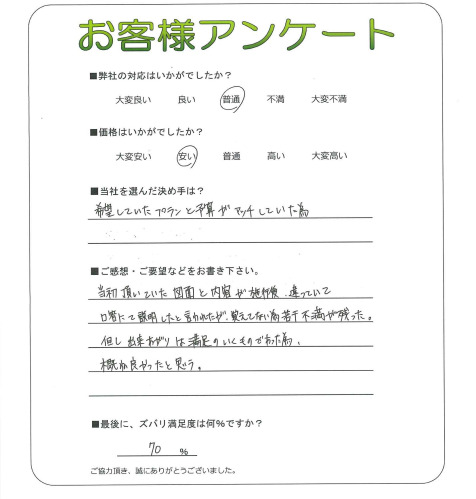 お客様アンケート
■弊社の対応はいかがでしたか？
大変良い 良い 普通 不満 大変不満
■価格はいかがでしたか？
大変安い 安い 普通 高い 大変高い
■当社を選んだ決め手は？
希望していたプランと予算がマッチしていた為
■ご感想・ご要望などをお書き下さい。
当初頂いていた図面と内容が施行後、違っていて
口答にて説明したと言われたが、覚えてない為若干不満が残った。
但し出来あがりは満足のいくものであった為、
概ね良かったと思う。
■最後に、ズバリ満足度は何%ですか？
70 %
ご協力頂き、誠にありがとうございました。